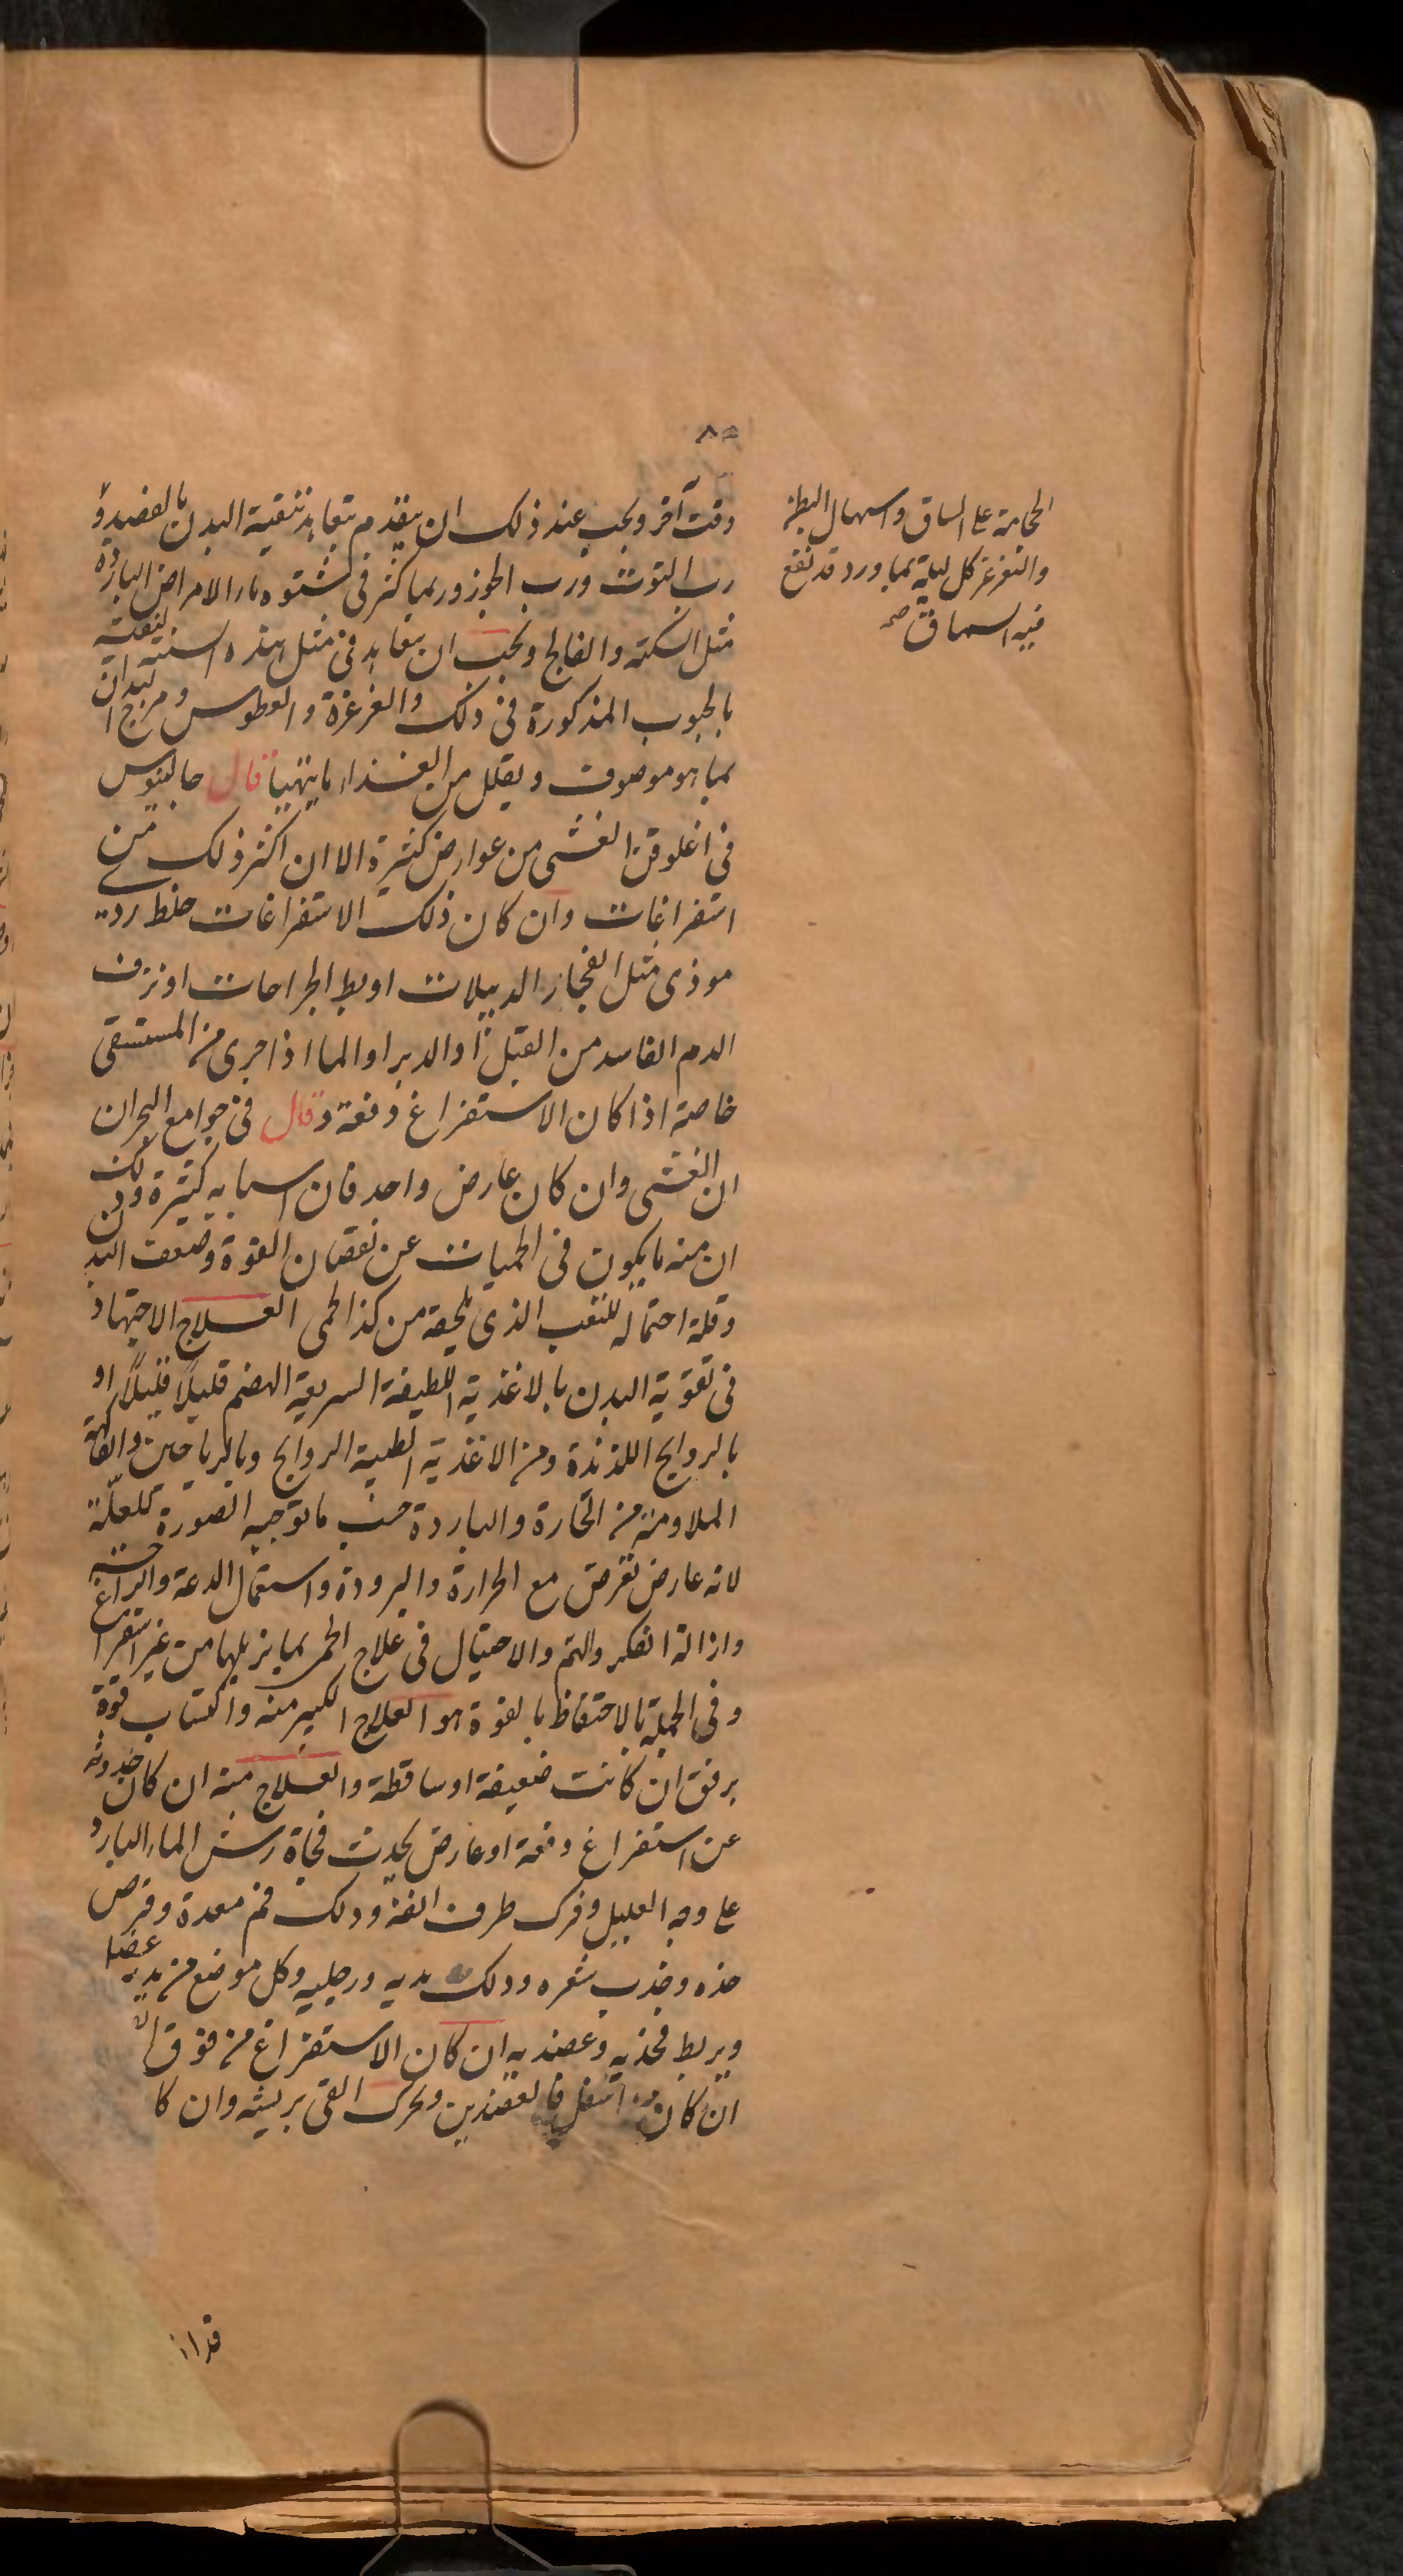 وقت آخر ويجب عند ذلك ان يتقدم بتعاهد تنقية البدن بالفصد و
الحجامة على الساق واسهال البطن
والتغرغر كل ليلة بماورد قد نقع
فيه السماق صح
رب التوث ورب الجوز وربما كثر فى شتوه هذا الامراض الباردة
مثل السكتة والفالج ويجب ان يتعاهد فى مثل هذه السنة لتنقية
بالحبوب المذكورة فى ذلك والغرغرة والعطوس ومرج الابدان
بما هو موصوف ويقلل من الغذاء ما يتهيا قال جالينوس
فى اغلوقن الغشى من عوارض كثيرة الا ان اكثر ذلك من
استفراغات وان كان ذلك الاستفراغات خلط ردى
موذى مثل انفجار الدبيلات او بط الجراحات او نزف
الدم الفاسد من القبل او الدبر او الما اذا جرى من المستسقى
خاصة اذا كان الاستفراغ دفعة وقال فى جوامع البحران
ان الغشى وان كان عارض واحد فان اسبابه كثيرة وذلك
ان منه ما يكون فى الحميات عن نقصان القوة وضعف البدن
وقلة احتماله للتعب الذى يلحقه من كذا الحمى العلاج الاجتهاد
فى تقوية البدن بالاغذية اللطيفة السريعة الهضم قليلاً قليلاً او
بالروايح اللذيذة ومن الاغذية الطيبة الروايح وبالرياحين والفاكهة
الملاومة من الحارة والباردة حسب ما توجبه الصورة للعلّة
لانه عارض تعرض مع الحرارة والبرودة واستعمال الدعة والراحة
وازالة الفكر والهم والاحتيال فى علاج الحمى بما يزيلها من غير استفراغ
وفى الجملة بالاحتفاظ بالقوة هو العلاج الكبير منه واكتساب قوة
برفق ان كانت ضعيفة او ساقطة والعلاج منه ان كان حدوثه
عن استفراغ دفعة او عارض يحدث فجاة رش الماء البارد
على وجه العليل وفرك طرف انفه ودلك فم معدة وقرص
خده وجذب شعره ودلك يديه ورجليه وكل موضع من بدنه عضا
ويربط فخذيه وعضديه ان كان الاستفراغ من فوق
ان كان من اسفل فالعضدين وتحرك القى بريشه وان كا